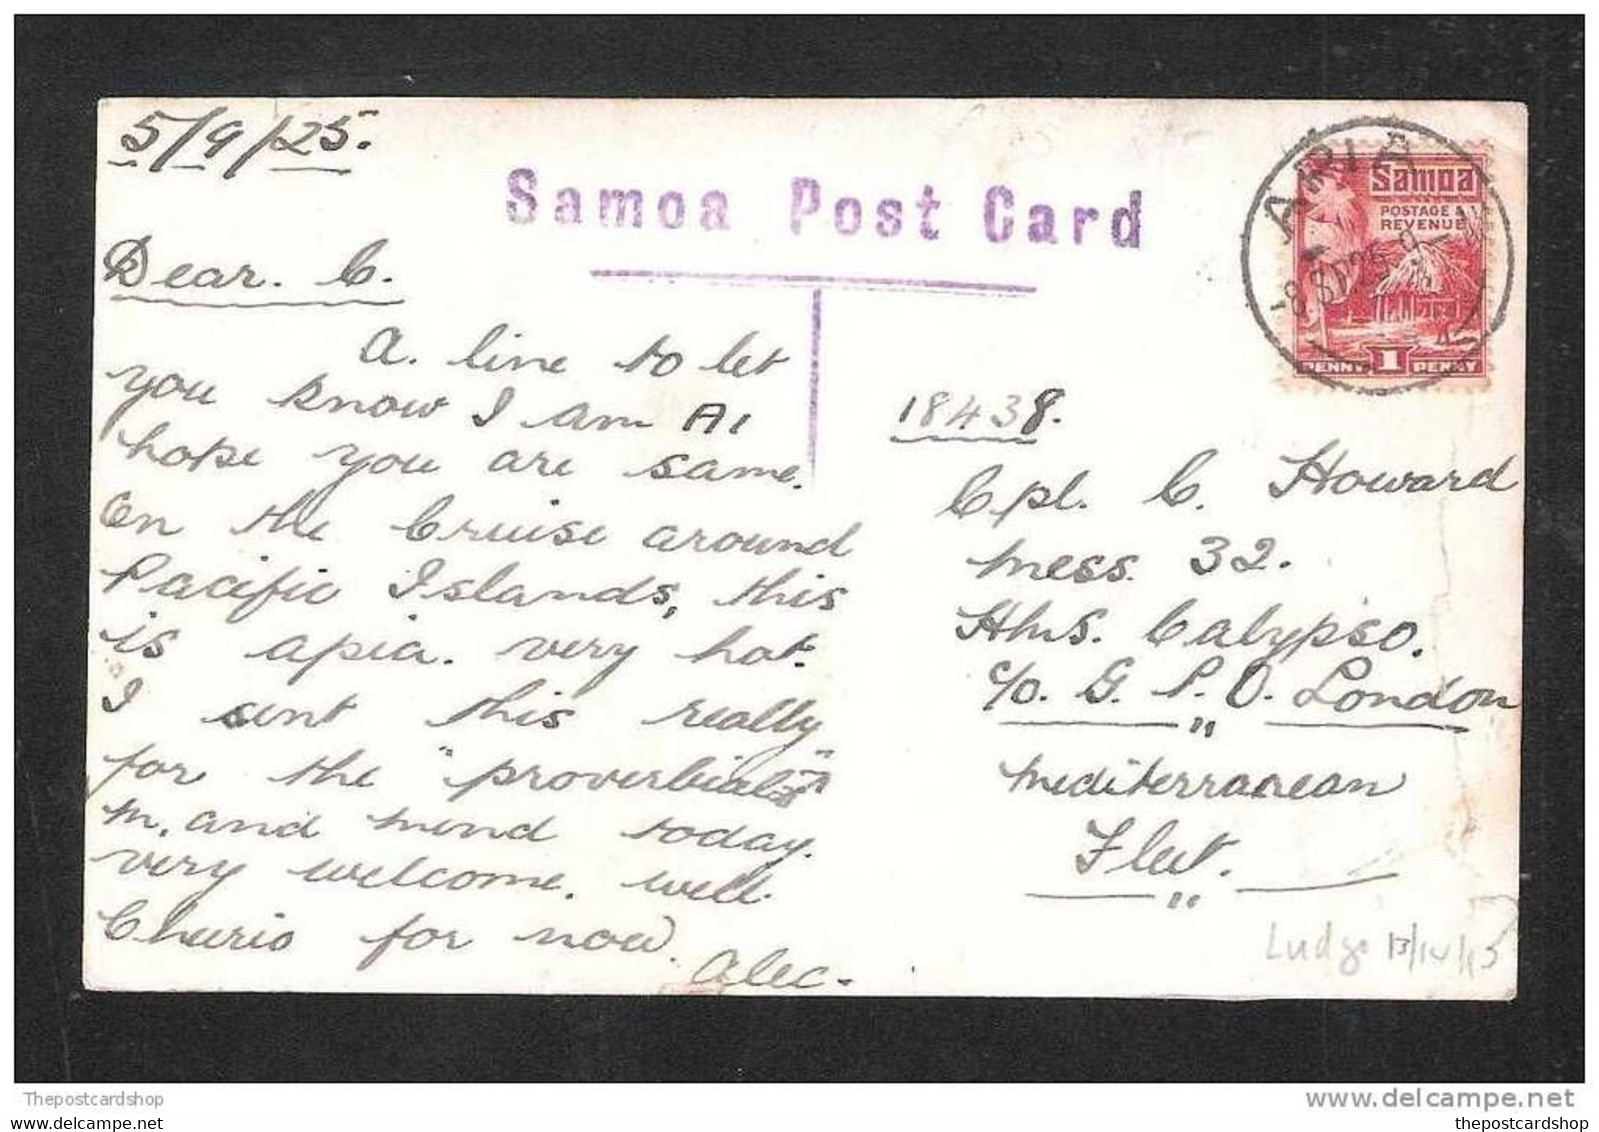 5/9/25.
Samoa Post Card
APIA
Samoa
POSTAGE &
REVENUE
PENNY 1 PENNY
Dear. C.
A. line to let
you know I am A1
hope you are same.
On the Cruise around
Pacific Islands, this
is apia. very hot.
I sent this really
for the "proverbials"
m. and mend today.
very welcome. well
Cheerio for now.
Alec.
18438.
Cpl. C. Howard
Mess. 32.
Hms. Calypso.
c/o. G. P. O. London
"
Mediterranean
Fleet.
"
Thepostcardshop
www.delcampe.net
www.thepostcardshop